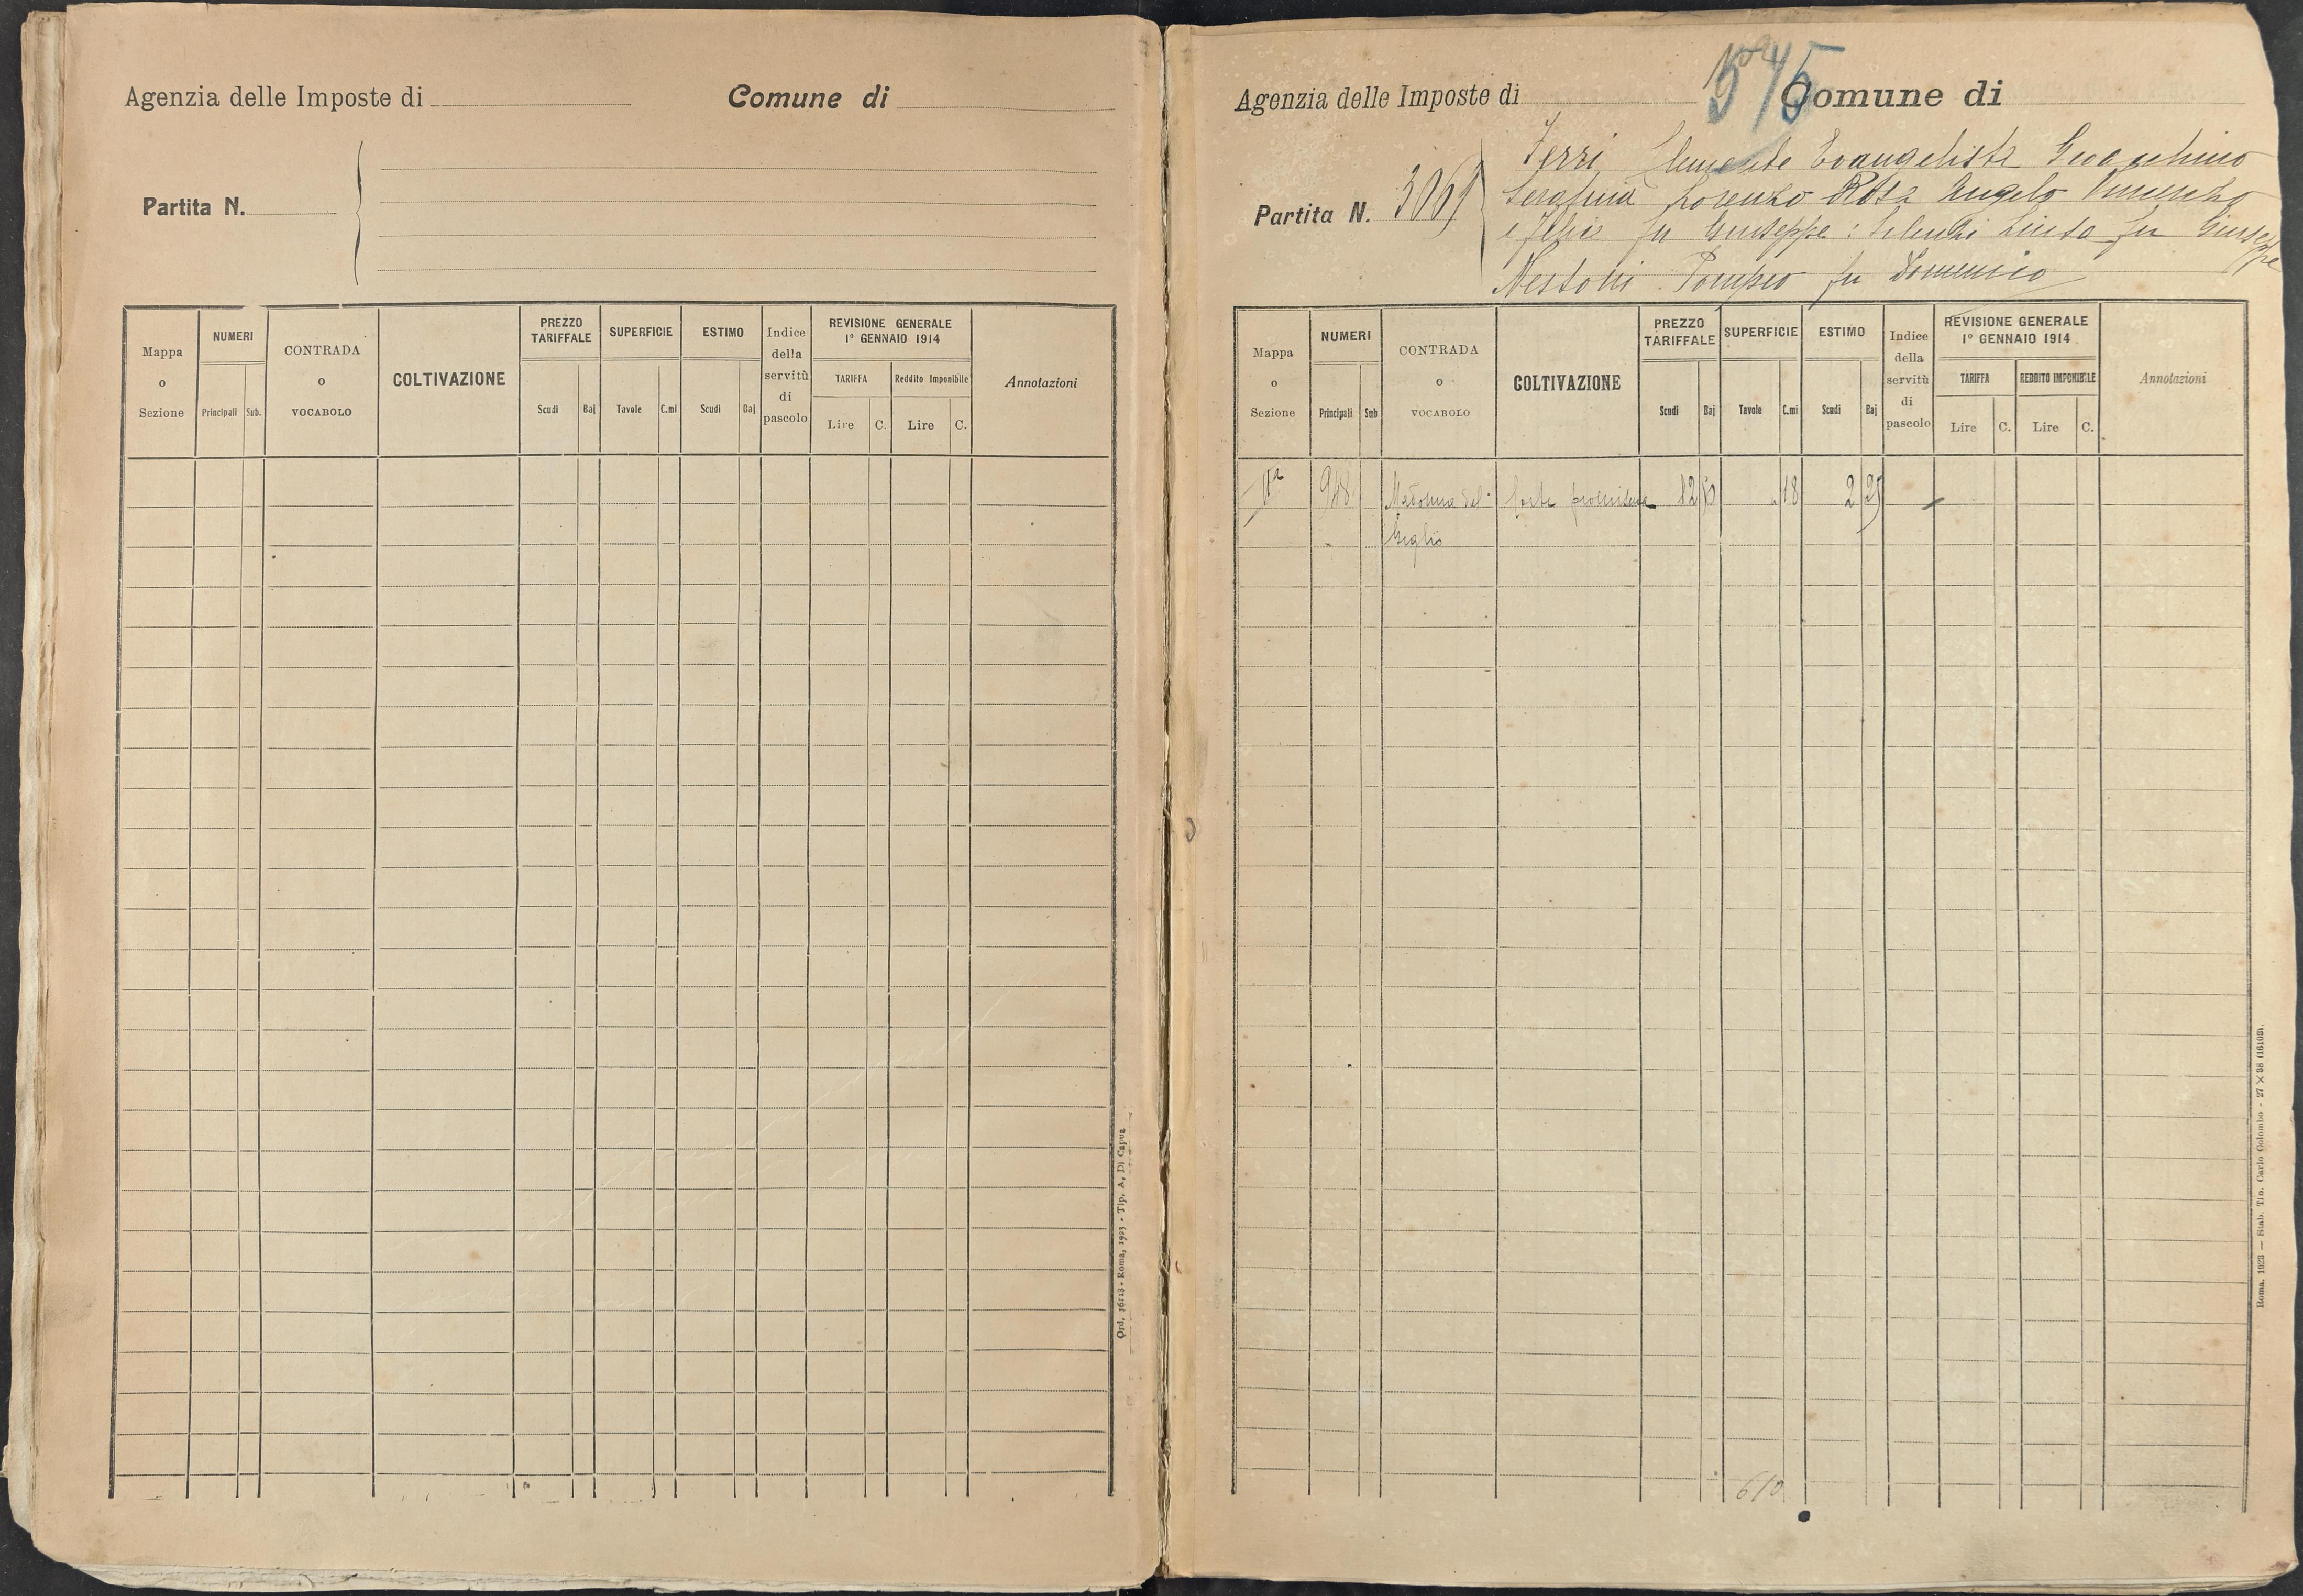 Agenzia delle Imposte di
Comune di
Partita N.
Mappa o Sezione
NUMERI
Principali
Sub.
CONTRADA o VOCABOLO
COLTIVAZIONE
PREZZO TARIFFALE
Scudi
Baj
SUPERFICIE
Tavole
C.mi
ESTIMO
Scudi
Baj
Indice della servitù di pascolo
REVISIONE GENERALE
1º GENNAIO 1914
TARIFFA
Reddito Imponibile
Lire
C.
Lire
C.
Annotazioni
Ord. 16113 - Roma, 1923 - Tip. A. Di Capua
545
Agenzia delle Imposte di
Comune di
Partita N. 3069
Ferri Clemente Evangelista Gioacchino
Serafina Lorenzo Rosa Angelo Vincenzo
e fu Giuseppe: Luisa fu Giuseppe
Nestoni Pompeo fu Domenico
Mappa o Sezione
NUMERI
Principali
Sub
CONTRADA o VOCABOLO
COLTIVAZIONE
PREZZO TARIFFALE
Scudi
Baj
SUPERFICIE
Tavole
C.mi
ESTIMO
Scudi
Baj
Indice della servitù di pascolo
REVISIONE GENERALE
1º GENNAIO 1914
TARIFFA
REDDITO IMPONIBILE
Lire
C.
Lire
C.
Annotazioni
948 Madonna del 18 2 25
Giglio
610
Roma, 1923 — Stab. Tip. Carlo Colombo - 27 × 38 (16103).